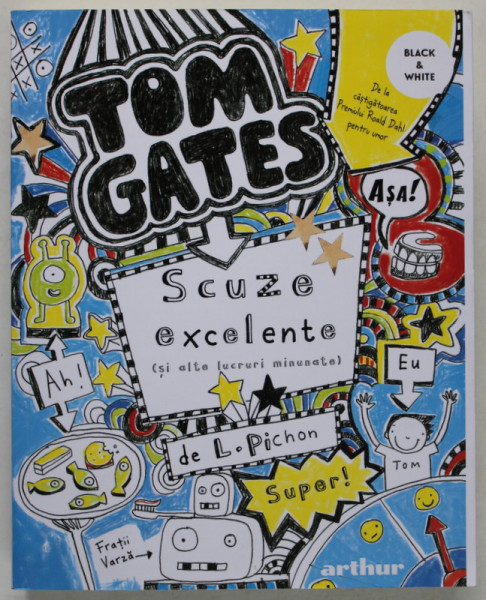 TOM
GATES
BLACK
&
WHITE
De la
câștigătoarea
Premiului Roald Dahl
pentru umor
AȘA!
Scuze
excelente
(și alte lucruri minunate)
de L. Pichon
Ah!
Eu
TOM
Super!
Frații
Varză
arthur